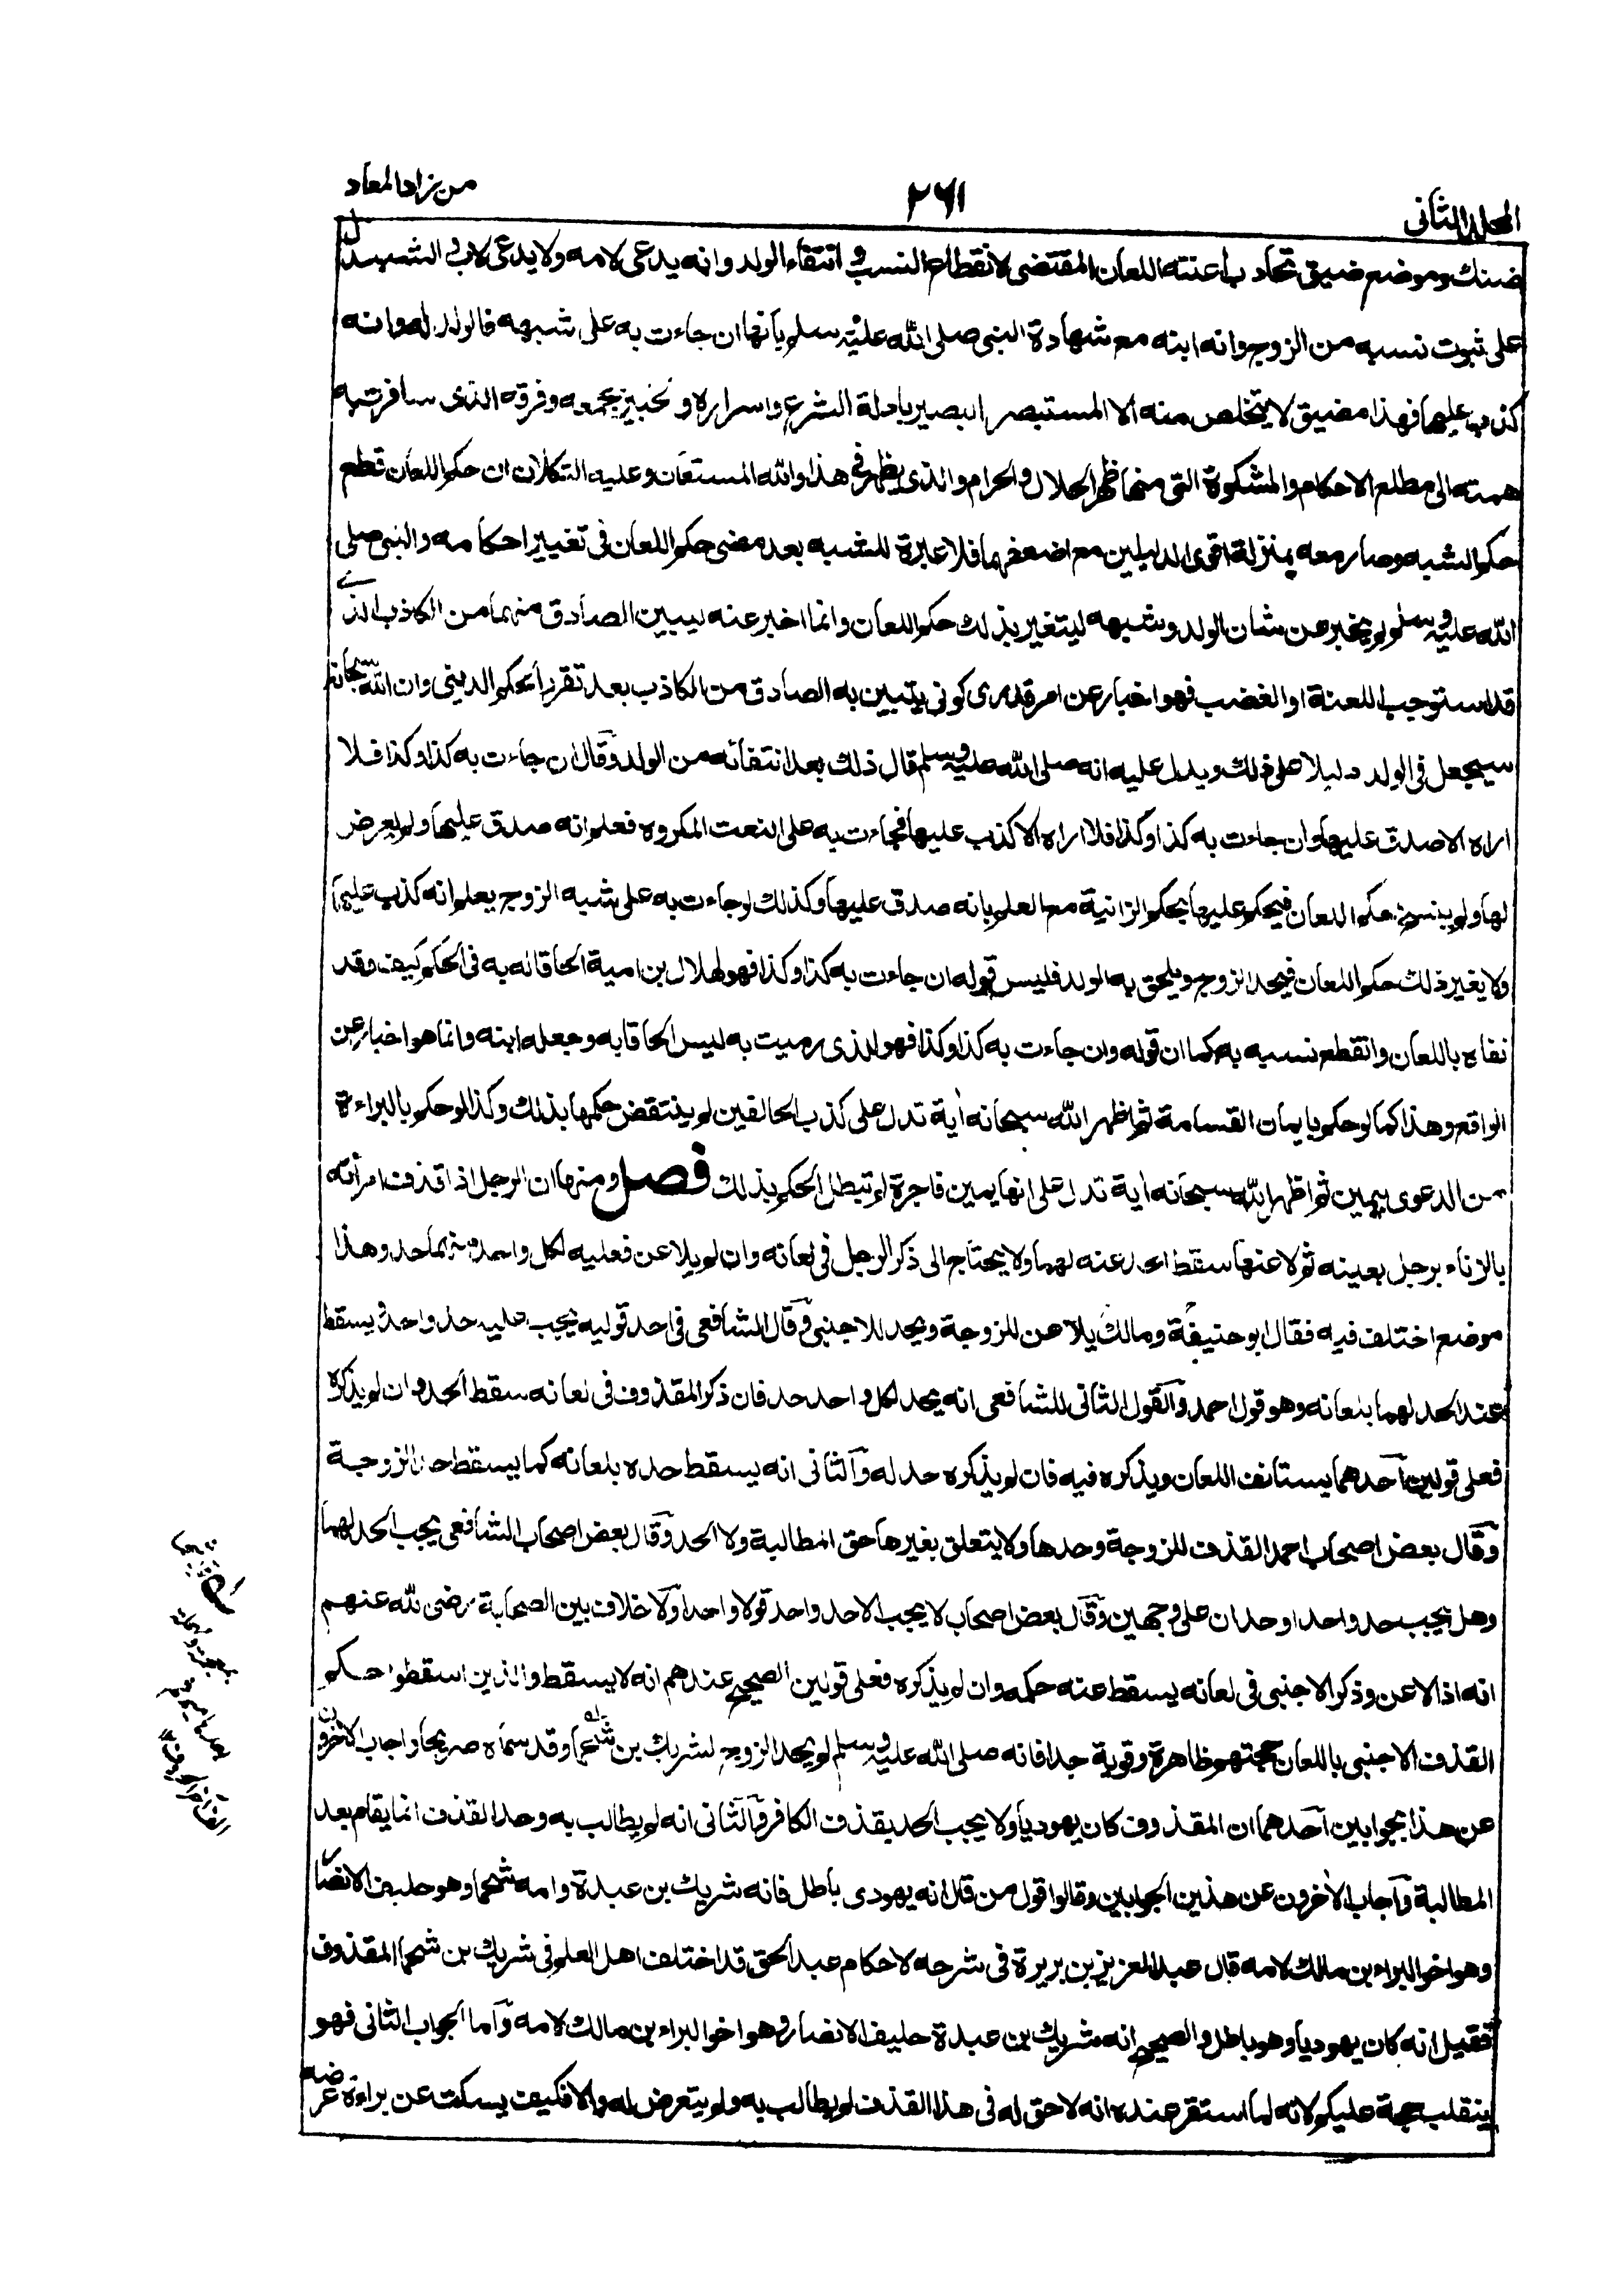 المجلد الثاني
٢٦١
من زاد المعاد
ضنك وموضع ضيق تجاذب اعنته اللعان المقتضى لانقطاع النسب و انتفاء الولد وانه يدعى لامه ولا يدعى لاب والشبه الدال
على ثبوت نسبه من الزوج وانه ابنه مع شهادة النبى صلى الله عليه وسلم بانها ان جاءت به على شبهه فالولد له وانه
كذب عليها فهذا مضيق لا يتخلص منه الا المستبصر البصير بادلة الشرع واسراره و الخبير بجمعه وفرقه الذى سافرت به
همته الى مطلع الاحكام والمشكوة التى منها ظهر الحلال والحرام والذى يظهر فى هذا والله المستعان وعليه التكلان ان حكم اللعان قطع
حكم الشبه وصار معه بمنزلة اقوى الدليلين مع اضعفهما فلا عبرة للشبه بعد مضى حكم اللعان فى تغيير احكامه والنبى صلى
الله عليه وسلم لم يخبر عن شان الولد وشبهه ليتغير بذلك حكم اللعان وانما اخبر عنه ليبين الصادق منهما من الكاذب الذى
قد استوجب اللعنة او الغضب فهو اخبار عن امر قدرى كونى يتبين به الصادق من الكاذب بعد تقرر الحكم الدينى وان الله سبحانه
سيجعل فى الولد دليلا على ذلك ويدل عليه انه صلى الله عليه وسلم قال ذلك بعد انتفائه من الولد وقال ان جاءت به كذا وكذا فلا
اراه الا صدق عليها وان جاءت به كذا وكذا فلا اراه الا كذب عليها فجاءت به على النعت المكروه فعلم انه صدق عليها ولم يعرض
لها ولم ينسخ حكم اللعان فيحكم عليها بحكم الزانية مع العلم بانه صدق عليها وكذلك لو جاءت به على شبه الزوج يعلم انه كذب عليها
ولا يغير ذلك حكم اللعان فيحد الزوج ويلحق به الولد فليس قوله ان جاءت به كذا وكذا فهو لهلال بن امية الحاقا له به فى الحكم كيف وقد
نفاه باللعان وانقطع نسبه به كما ان قوله وان جاءت به كذا وكذا فهو للذى رميت به ليس الحاقا به وجعله ابنه وانما هو اخبار عن
الواقع وهذا كما لو حكم بايمان القسامة ثم اظهر الله سبحانه اية تدل على كذب الحالفين لم ينتقض حكمها بذلك وكذا لو حكم بالبراءة
من الدعوى بيمين ثم اظهر الله سبحانه اية تدل على انها يمين فاجرة لم تبطل الحكم بذلك فصل ومنها ان الرجل اذا قذف امرأته
بالزناء برجل بعينه ثم لاعنها سقط الحد عنه لهما ولا يحتاج الى ذكر الرجل فى لعانه وان لم يلاعن فعليه لكل واحد منهما حد وهذا
موضع اختلف فيه فقال ابو حنيفة ومالك يلاعن للزوجة ويحد للاجنبى وقال الشافعى فى احد قوليه يجب عليه حد واحد ويسقط
عنه الحد لهما بلعانه وهو قول احمد والقول الثانى للشافعى انه يحد لكل واحد حد فان ذكر المقذوف فى لعانه سقط الحد وان لم يذكره
فعلى قولين احدهما يستانف اللعان ويذكره فيه فان لم يذكره حد له والثانى انه يسقط حده بلعانه كما يسقط حد الزوجة
وقال بعض اصحاب احمد القذف للزوجة وحدها ولا يتعلق بغيرها حق المطالبة ولا الحد وقال بعض اصحاب الشافعى يجب الحد لهما
وهل يجب حد واحد او حدان على وجهين وقال بعض اصحاب لا يجب الا حد واحد قولا واحدا ولا خلاف بين الصحابة رضى الله عنهم
انه اذا لاعن وذكر الاجنبى فى لعانه يسقط عنه حكمه وان لم يذكره فعلى قولين الصحيح عندهم انه لا يسقط والذين اسقطوا حكم
القذف الاجنبى باللعان حجتهم ظاهرة وقوية جدا فانه صلى الله عليه وسلم لم يحد الزوج لشريك بن شحما وقد سماه صريحا واجاب الاخرون
عن هذا بجوابين احدهما ان المقذوف كان يهوديا ولا يجب الحد بقذف الكافر والثانى انه لم يطالب به وحد القذف انما يقام بعد
المطالبة واجاب الاخرون عن هذين الجوابين وقالوا قول من قال انه يهودى باطل فانه شريك بن عبدة وامه شحما وهو حليف الانصار
وهو اخو البراء بن مالك لامه قال عبد العزيز بن بريرة فى شرحه لاحكام عبد الحق قد اختلف اهل العلم فى شريك بن شحما المقذوف
فقيل انه كان يهوديا وهو باطل والصحيح انه شريك بن عبدة حليف الانصار وهو اخو البراء بن مالك لامه واما الجواب الثانى فهو
ينقلب حجة عليكم لانه لما استقر عنده انه لا حق له فى هذا القذف لم يطالب به ولم يتعرض له والا فكيف يسكت عن براءة عرضه